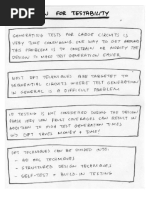 N FOR TESTABILITY
GENERATING TESTS FOR LARGE CIRCUITS IS
VERY TIME CONSUMING. ONE WAY TO GET AROUND
THIS PROBLEM IS TO CONSTRAIN OR MODIFY THE
DESIGN TO MAKE TEST GENERATION EASIER.
MOST DFT TECHNIQUES ARE TARGETED TO
SEQUENTIAL CIRCUITS WHERE TEST GENERATION
IN GENERAL IS A DIFFICULT PROBLEM.
IF TESTING IS NOT CONSIDERED DURING THE DESIGN
PHASE THEN
VERY LOW FAULT COVERAGES CAN RESULT IN
ADDITION TO HIGH TEST GENERATION TIMES
DFT TECHNIQUES CAN BE DIVIDED INTO:
- AD HOC TECHNIQUES
- STRUCTURED DESIGN TECHNIQUES
- SELF-TEST & BUILT-IN TESTING